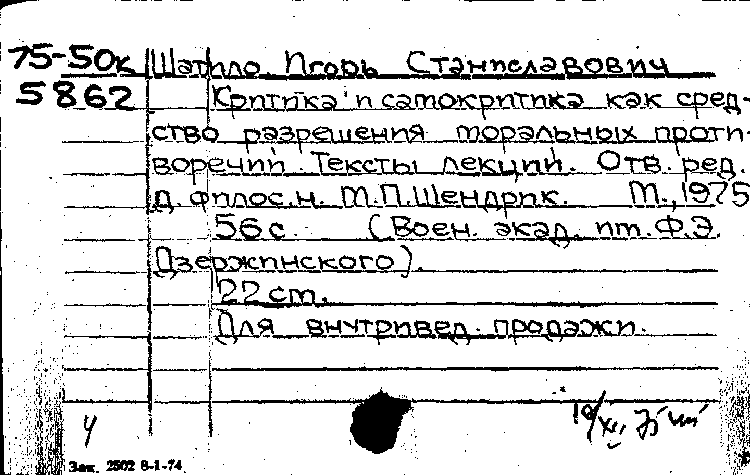 75-50к Шатило Игорь Станиславович
5862 Критика и самокритика как сред-
ство разрешения моральных проти-
воречий. Тексты лекций. Отв. ред.
д. филос.н. М.П.Шендрик. М.,1975
56с. (Воен. акад. им.Ф.Э.
Дзержинского).
22 ст.
Для внутривед. продажи.
4
Зак. 2502 8-1-74